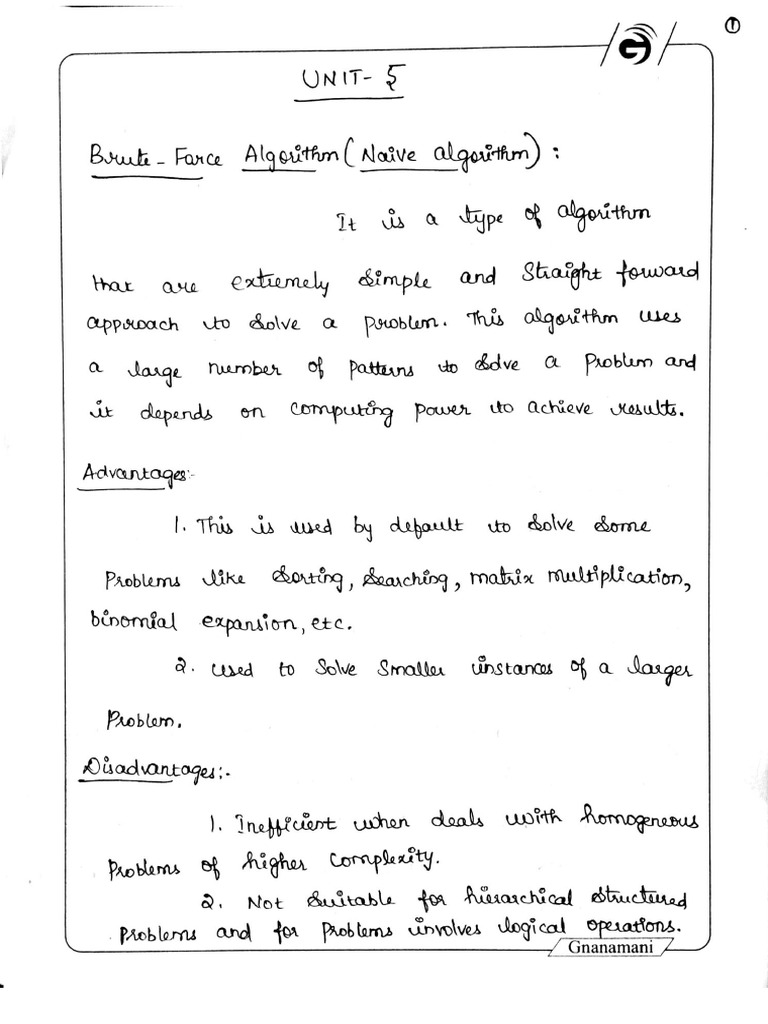 1
G
UNIT- 5
Brute-Farce Algorithm (Naive algorithm) :
It is a type of algorithm
that are extremely simple and straight forward
approach to solve a problem. This algorithm uses
a large number of patterns to solve a problem and
it depends on computing power to achieve results.
Advantages:-
1. This is used by default to solve some
Problems like sorting, searching, matrix multiplication,
binomial expansion, etc.
2. Used to solve smaller instances of a larger
Problem.
Disadvantages:-
1. Inefficient when deals with homogeneous
Problems of higher complexity.
2. Not suitable for hierarchical structured
Problems and for problems involves logical operations.
Gnanamani